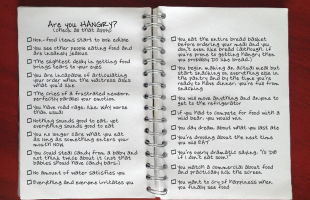 Are you HANGRY?
(check all that apply)
Non-food items start to look edible
You see other people eating food and
are insanely jealous
The slightest delay in getting food
brings tears to your eyes
You are incapable of articulating
your order when the waitress asks
what you'd like
The cries of a frustrated newborn
perfectly parallel your emotion
You have road rage, like way worse
than usual
Nothing sounds good to eat, yet
everything sounds good to eat
You no longer care what you eat
as long as something enters your
mouth NOW
You could steal candy from a baby and
not think twice about it (not that
babies should have candy bars)
No amount of water satisfies you
Everything and everyone irritates you
You eat the entire bread basket
before ordering your meal (and you
don't even like bread (although if
you're prone to getting hangry then
you probably DO like bread.)
You begin making an actual meal but
start snacking on everything else in
the pantry and by the time you're
ready to have dinner, you're full from
snacking
You will move anything and anyone to
get to the refrigerator
If you had to compete for food with a
wild bear, you would win
You day dream about what you last ate
You're drooling about the next time
you will EAT
You're overly dramatic saying "I'll DIE
if I don't eat soon!"
You watch a commercial about food
and practically lick the screen
You want to cry of happiness when
you finally see food